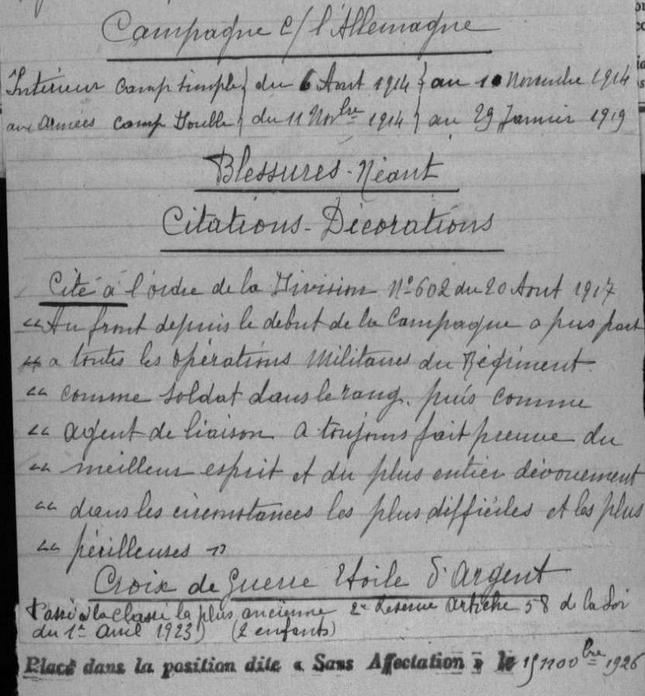 Campagne c/ l'Allemagne
Intérieur camp simple } du 6 Aout 1914 } au 10 Novembre 1914
aux Armées camp Double } du 11 Novbre 1914 } au 29 Janvier 1919
Blessures - Néant
Citations - Décorations
Cité à l'ordre de la Division N° 602 du 20 Aout 1917
"Au front depuis le debut de la Campagne a pris part
" a toutes les opérations Militaires du Régiment
" comme soldat dans le rang, puis comme
" agent de liaison a toujours fait preuve du
" meilleur esprit et du plus entier dévouement
" dans les circonstances les plus difficiles et les plus
" périlleuses "
Croix de Guerre Etoile d'Argent
Passé à la classe la plus ancienne 2e Réserve Article 58 d la Loi
du 1er Avril 1923) (2 enfants)
Placé dans la position dite « Sans Affectation » le 15 novbre 1926